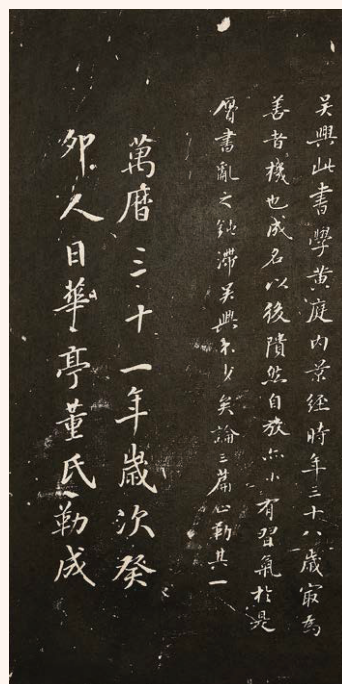 吳興此書學黃庭內景經時年三十八歲㝡為
善者機也成名以後隤然自放亦小有習氣於是
贗書亂之鈍滯吳興不少矣論三篇止勒其一
萬曆三十一年歲次癸
卯人日華亭董氏勒成